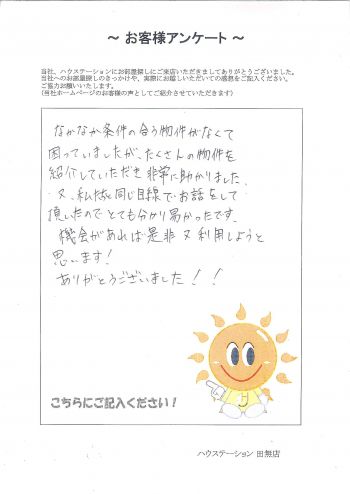 ～ お客様アンケート ～
当社、ハウステーションにお部屋探しにご来店いただきましてありがとうございました。
当社へのお部屋探しのきっかけや、実際にお越しいただいての感想をご記入ください。
ご協力お願いいたします。
(当社ホームページのお客様の声としてご紹介させていただきます)
なかなか条件の合う物件がなくて
困っていましたが、たくさんの物件を
紹介していただき非常に助かりました。
又、私たちと同じ目線でお話をして
頂したのでとても分かり易かったです。
機会があれば是非又利用しようと
思います!
ありがとうございました!!
こちらにご記入ください!
ハウステーション 田無店